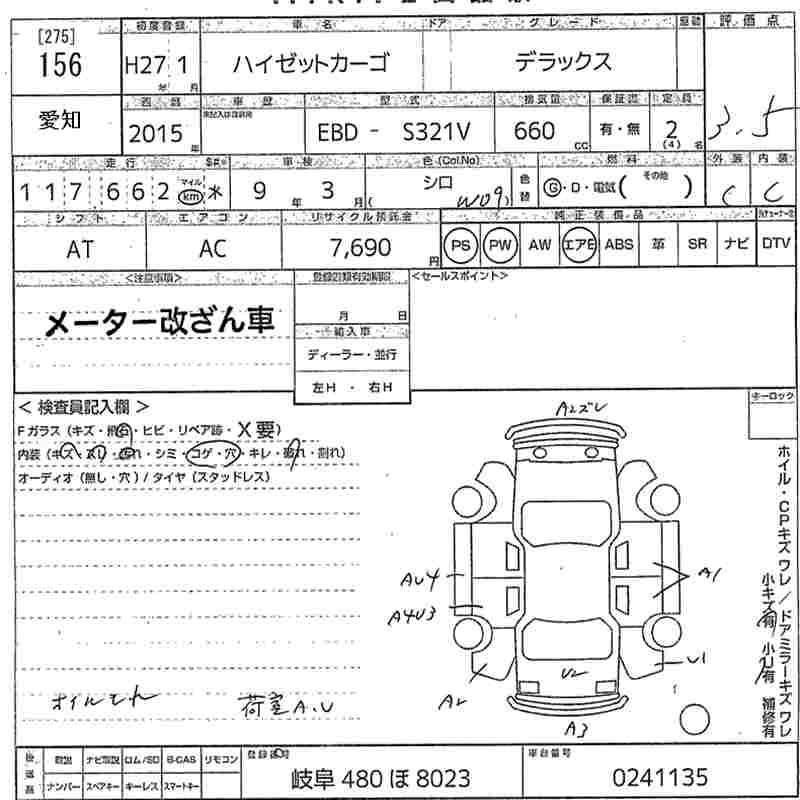 [275]
156
愛知
初度登録
H27 1
年 月
車名
ハイゼットカーゴ
ドア
グレード
デラックス
評価点
3.5
2015
年
車歴
型式
EBD - S321V
排気量
660
cc
保証書
有・無
定員
2
(4) 名
走行
117,662
マイル
km
車検
9 年 3 月
色(Col.No)
シロ
( W09 )
色替
燃料
G・D・電気( その他 )
外装
C
内装
C
シフト
AT
エアコン
AC
リサイクル預託金
7,690
円
純正装備品
PS PW AW エアB ABS 革 SR ナビ DTV
<注意事項>
メーター改ざん車
登録書類有効期限
月 日
輸入車
ディーラー・並行
左H ・ 右H
<セールスポイント>
< 検査員記入欄 >
Fガラス(キズ・飛石・ヒビ・リペア跡・X要)
内装(キズ・スレ・汚れ・シミ・コゲ・穴・キレ・破れ・割れ)
オーディオ(無し・穴)/タイヤ(スタッドレス)
オイルもれ
荷室A.U
A2ズレ
AU4
A4U3
A2
A1
U1
U2
A3
キーロック
ホイル・CPキズワレ/ドアミラーキズワレ
小キズ有/小U有 補修有
取説 ナビ取説 ロム/SD B-CAS リモコン
ナンバー スペアキー キーレス スマートキー
登録番号
岐阜 480 ほ 8023
車台番号
0241135